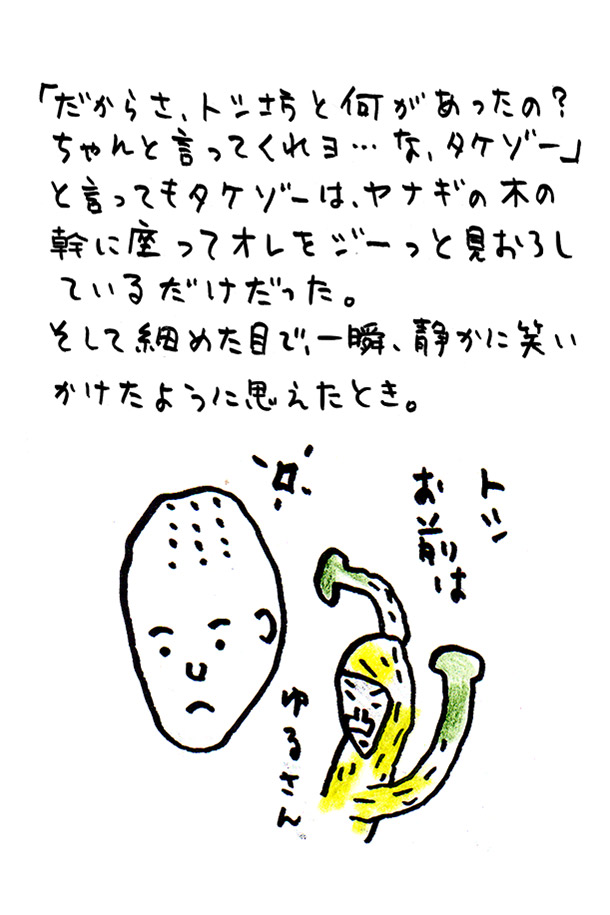 「だからさ、トシ坊と何があったの?
ちゃんと言ってくれヨ…な、タケゾー」
と言ってもタケゾーは、ヤナギの木の
幹に座ってオレをジーっと見おろし
ているだけだった。
そして細めた目で、一瞬、静かに笑い
かけたように思えたとき。
トシ
お前は
ゆるさん